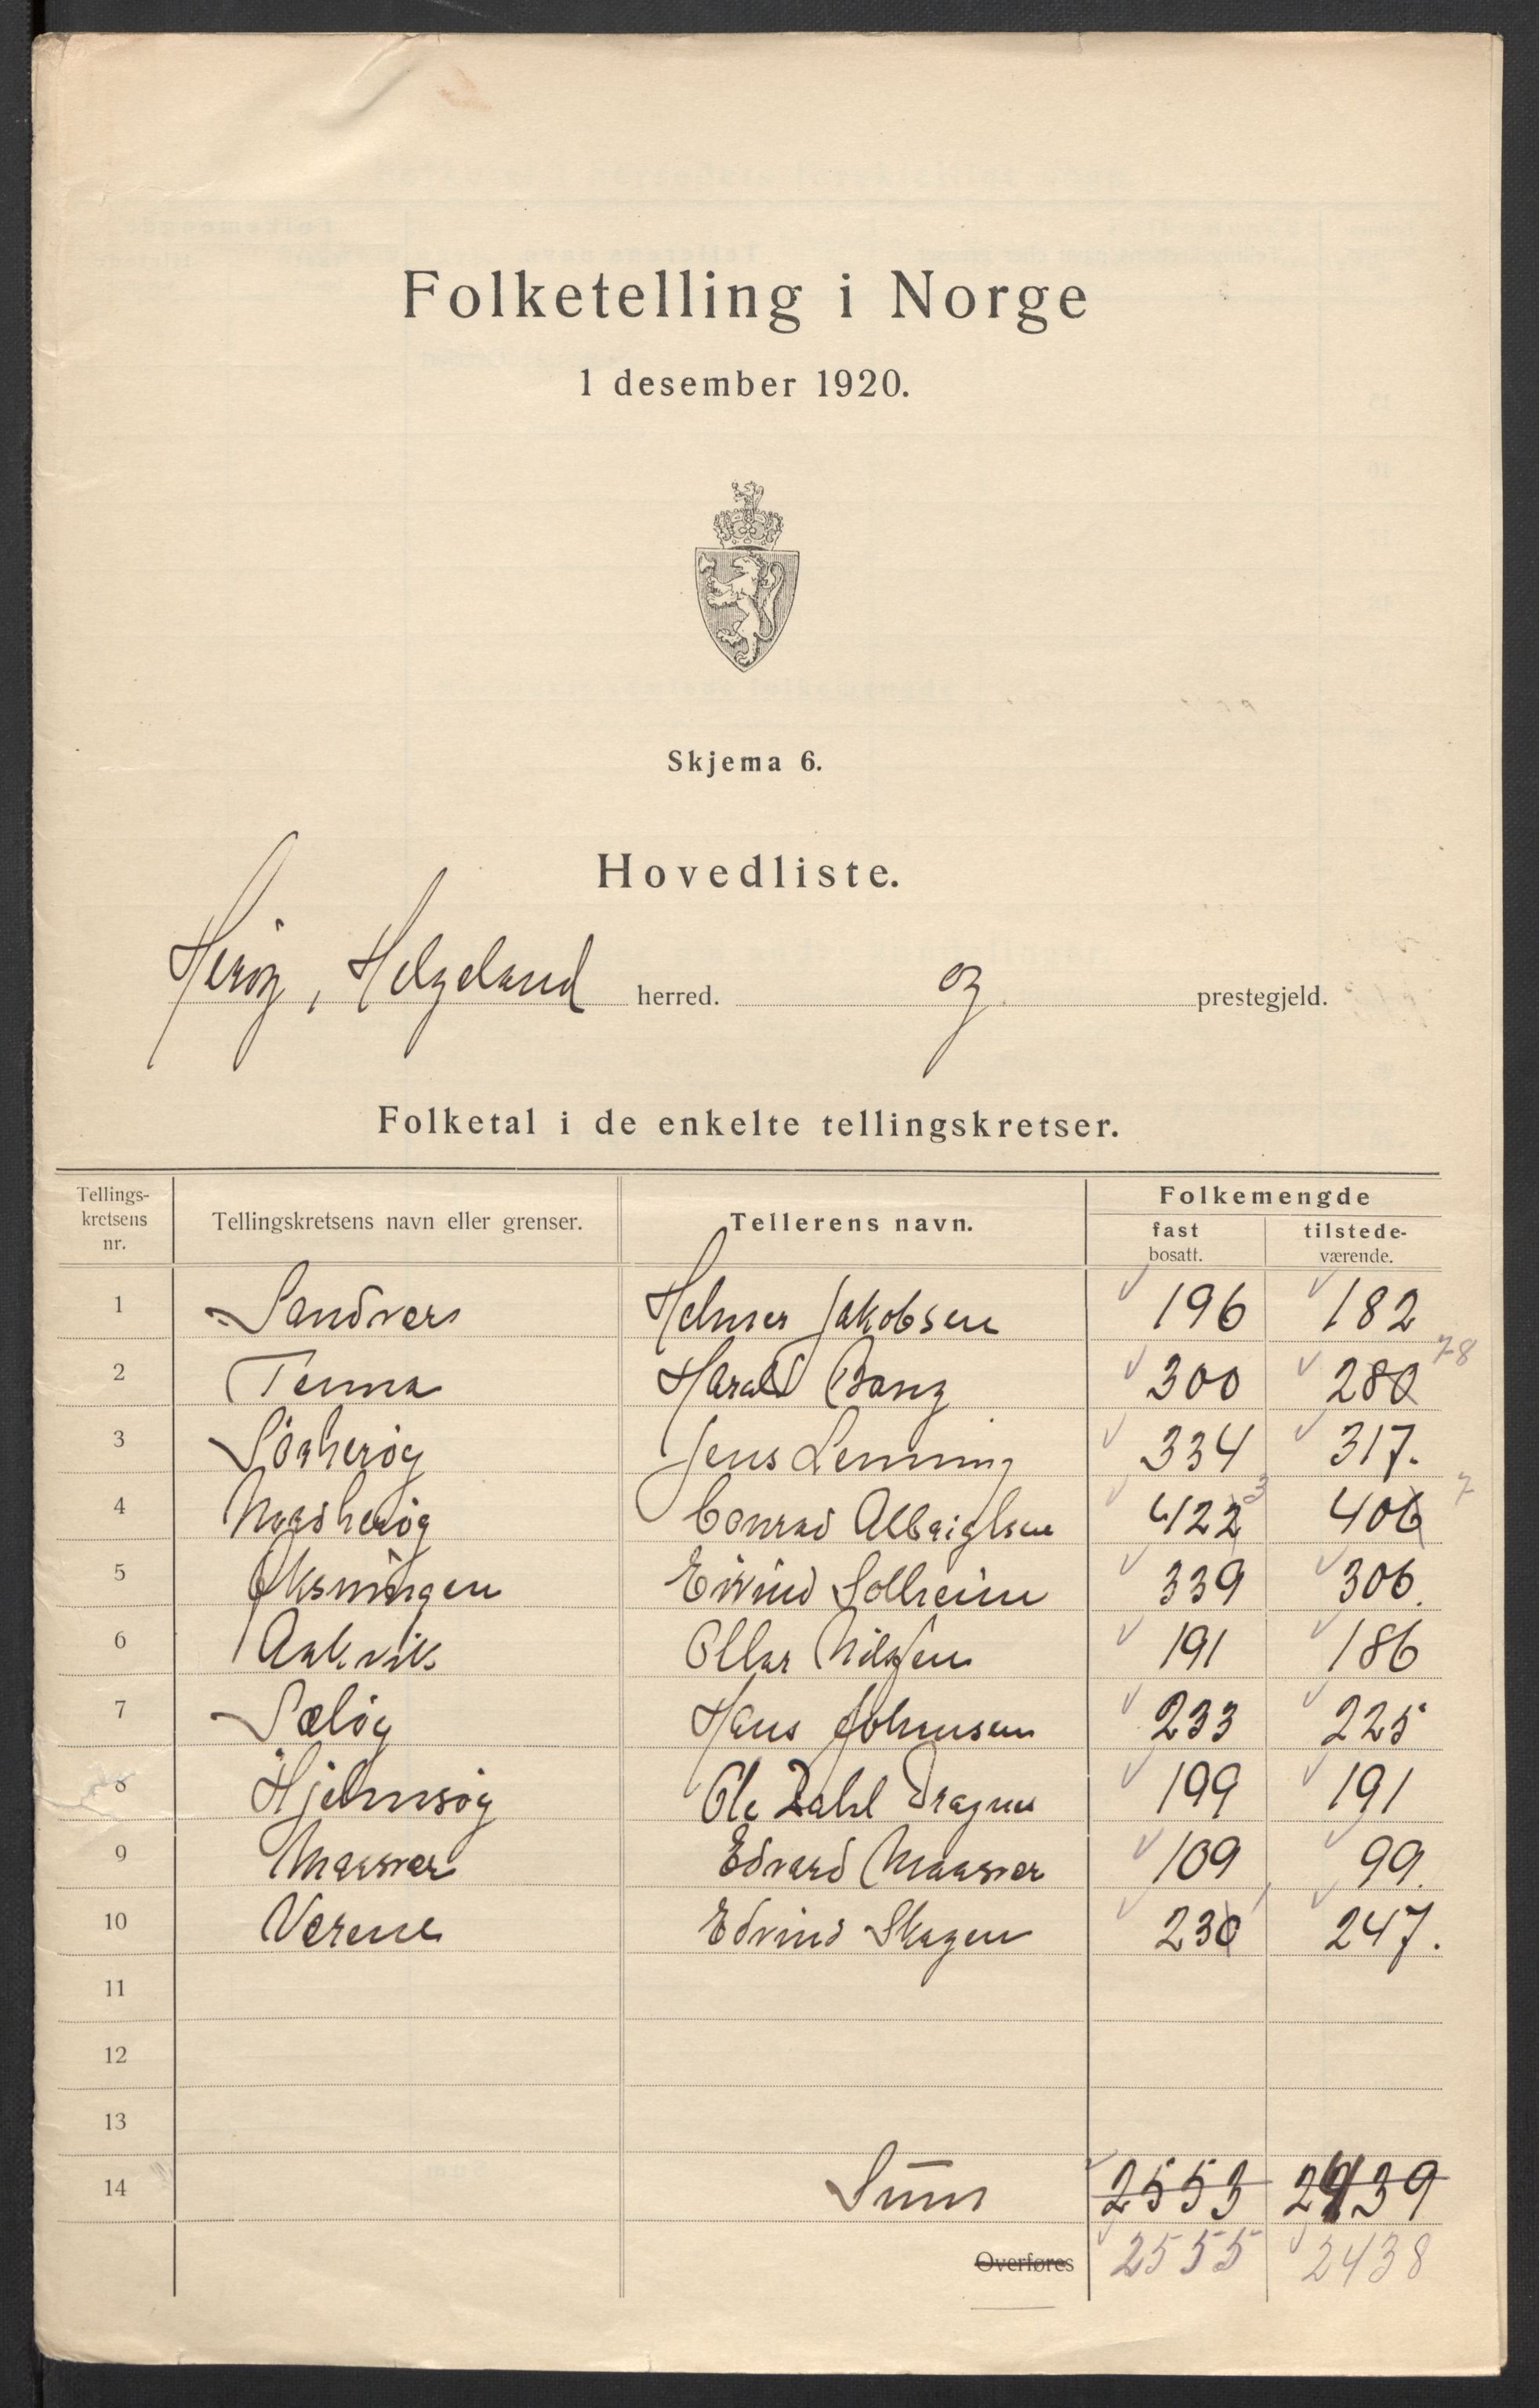 Folketelling i Norge
1 desember 1920.
Skjema 6.
Hovedliste.
Herøy, Helgeland herred. og prestegjeld.
Folketal i de enkelte tellingskretser.
Tellings-kretsens nr. Tellingskretsens navn eller grenser. Tellerens navn. Folkemengde fast bosatt. tilstede-værende.
1 Sandvær Helmer Jakobsen 196 182
2 Tenna Harald Bang 300 280 78
3 Sörherøy Jens Lenning 334 317.
4 Nordherøy Conrad Albrigtsen 422 3 406 7
5 Øksningen Eivind Solheim 339 306.
6 Aakvik Ottar Nilssen 191 186
7 Sæløy Hans Johnsen 233 225
8 Hjelmsøy Ole Dahl 199 191
9 Maasvær Edvard Maasvær 109 99.
10 Værene Edvind Skagen 230 1 247.
11
12
13
14 Sum 2553 2439
Overføres 2555 2438